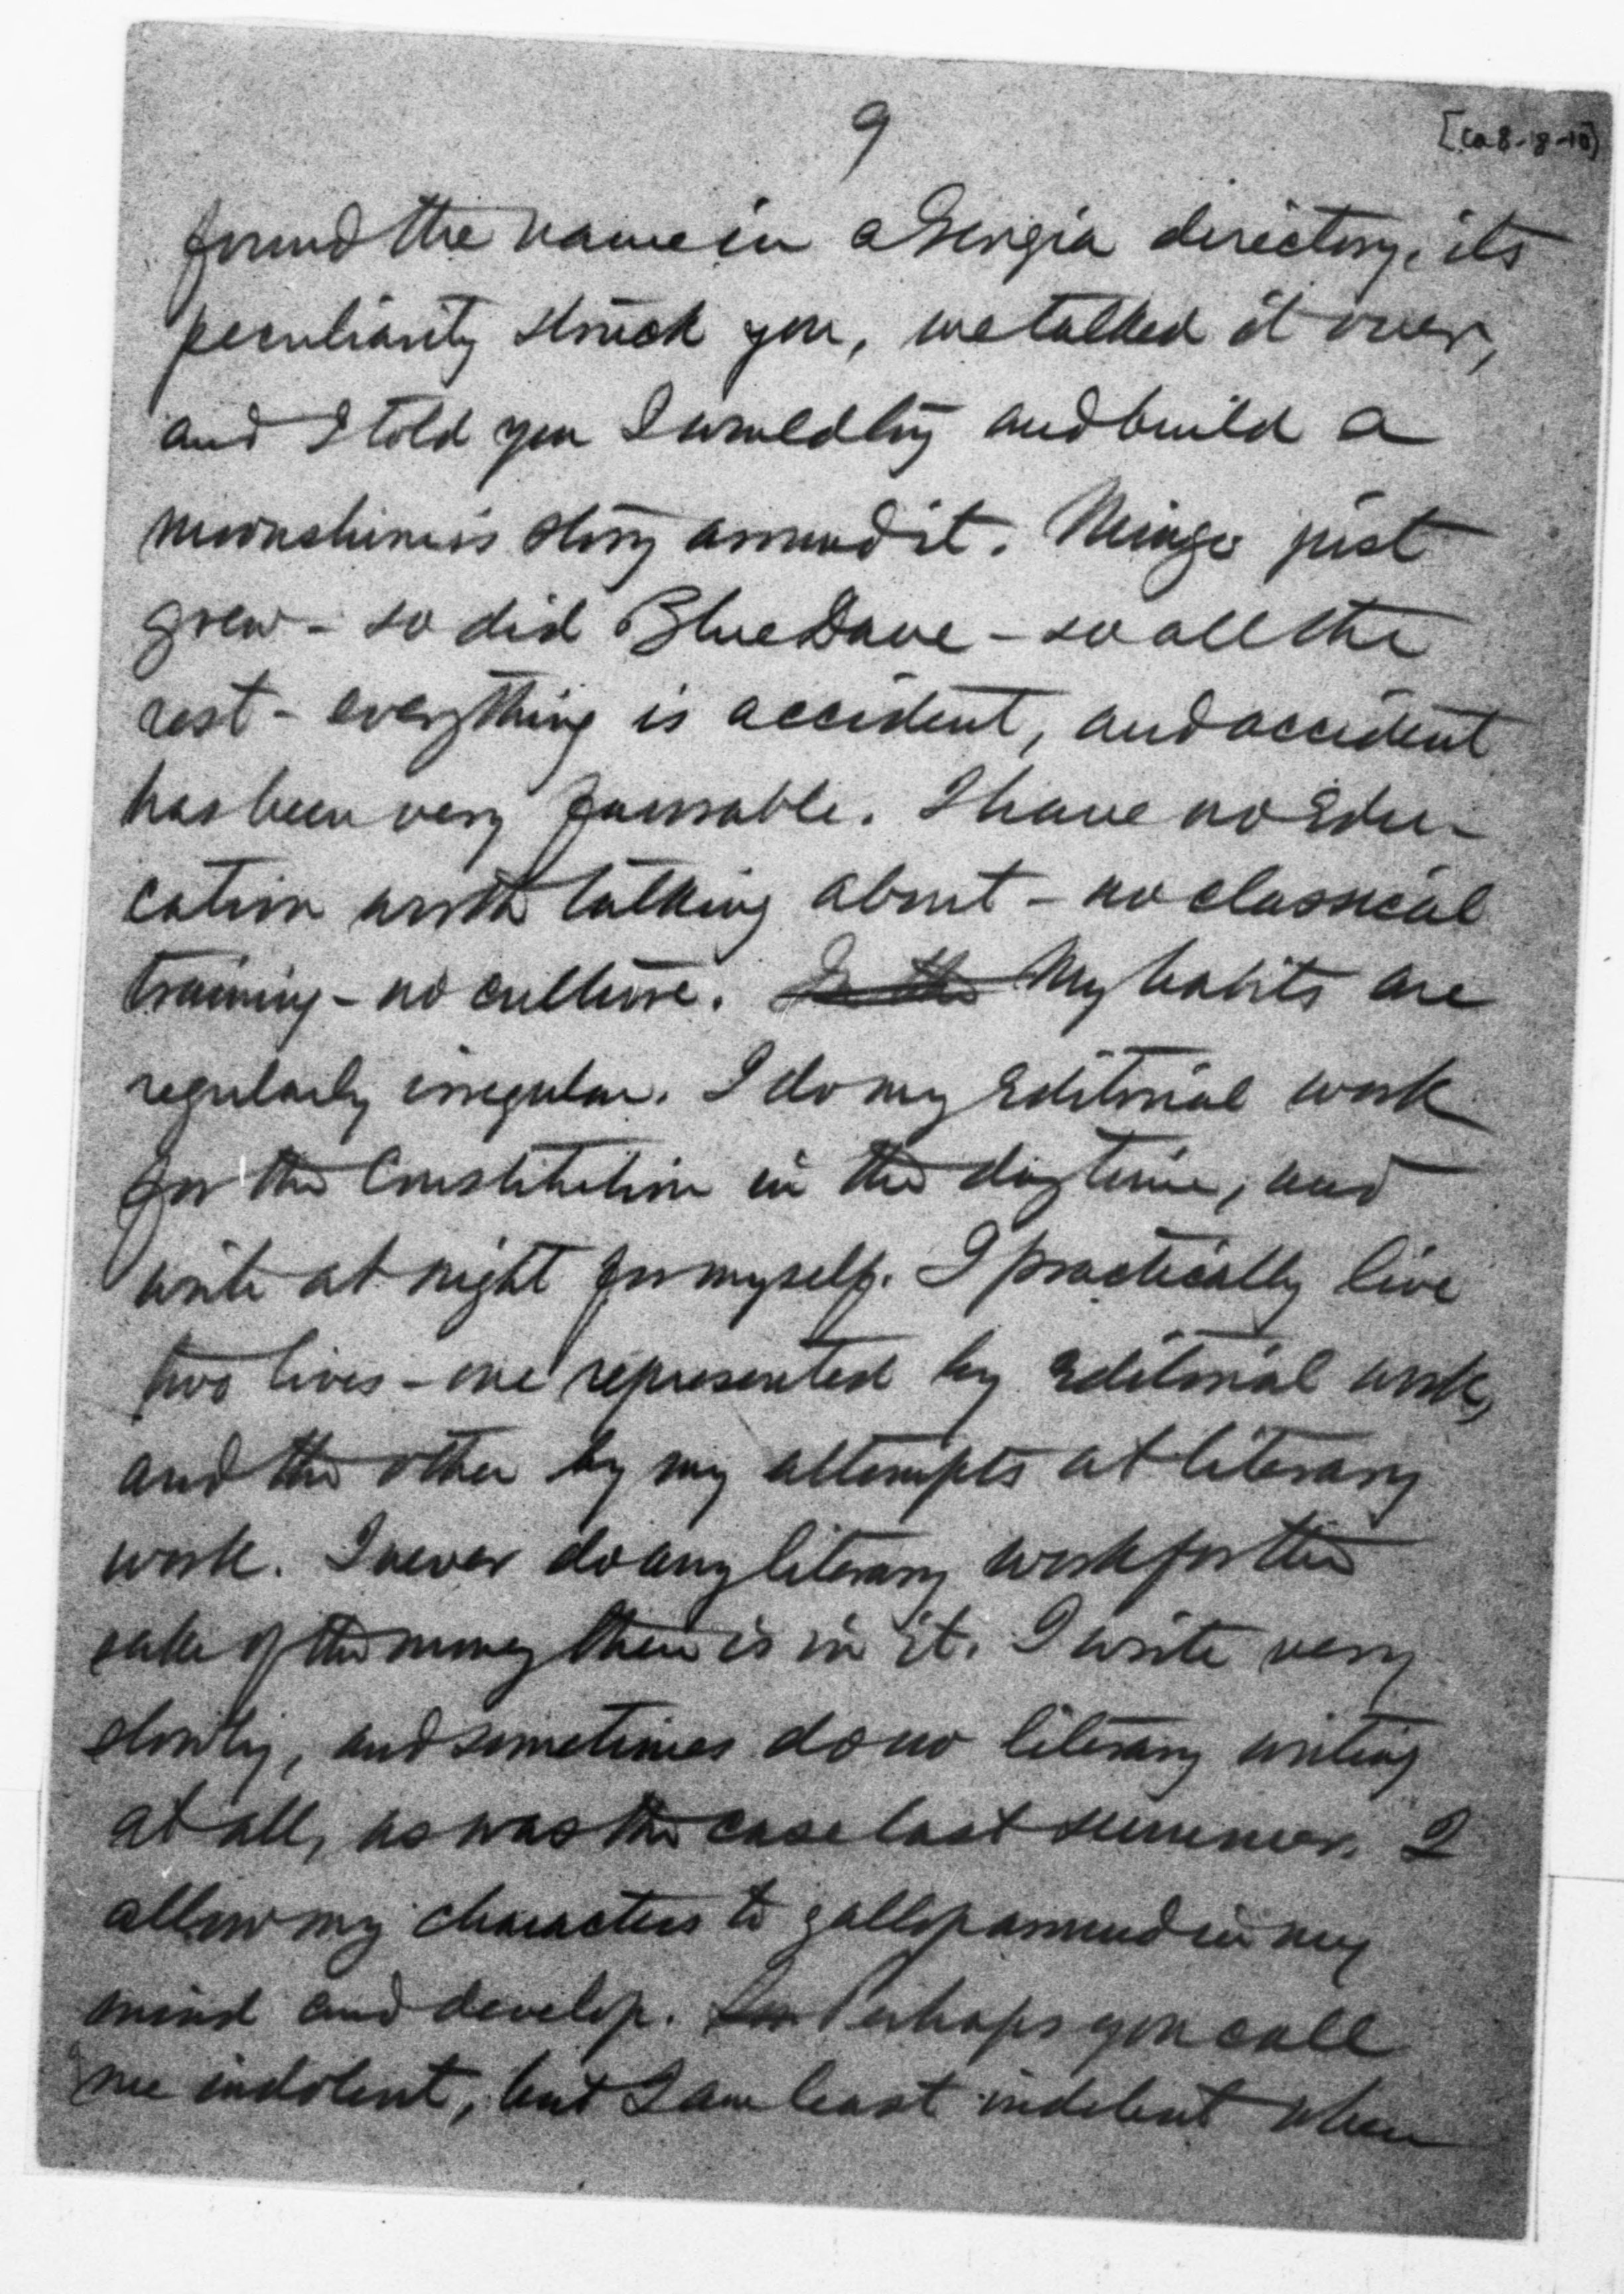 9
found the name in a Georgia directory, its
peculiarity struck you, we talked it over,
and I told you I would try and build a
moonshiner's story around it. Mingo just
grew - so did Blue Dave - so all the
rest - everything is accident, and accident
has been very favorable. I have no edu-
cation worth talking about - no classical
training - no culture. In the My habits are
regularly irregular. I do my editorial work
for the Constitution in the day time, and
write at night for myself. I practically live
two lives - one represented by editorial work,
and the other by my attempts at literary
work. I never do any literary work for the
sake of the money there is in it. I write very
slowly, and sometimes do no literary writing
at all, as was the case last summer. I
allow my characters to gallop around in my
mind and develop. Perhaps you call
me indolent, but I am least indolent when